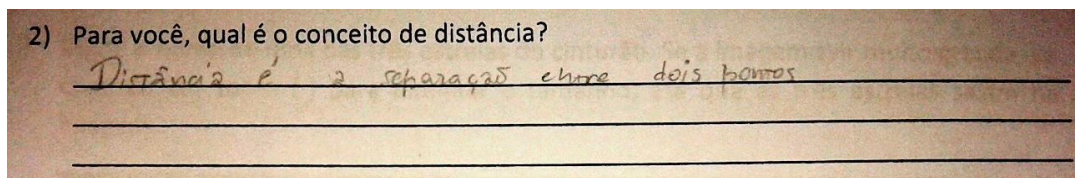 2) Para você, qual é o conceito de distância?
Distância é a separação entre dois pontos